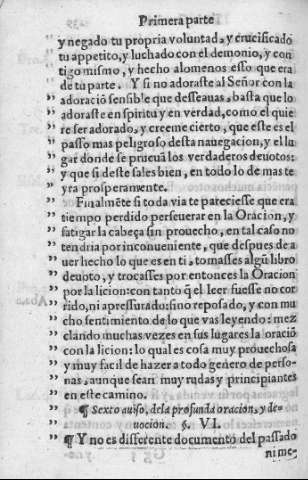 Primera parte
y negado tu propria voluntad, y crucificado
tu appetito, y luchado con el demonio, y con
tigo mismo, y hecho alomenos esso que era
de tu parte. Y si no adoraste al Señor con la
adoració sensible que desseauas, basta que lo
adoraste en spiritu y en verdad, como el quie
re ser adorado, y creeme cierto, que este es el
passo mas peligroso desta nauegacion, y el lu
gar donde se prueuã los verdaderos deuotos:
y que si deste sales bien, en todo lo de mas te
yra prosperamente.
Finalmẽte si toda via te pareciesse que era
tiempo perdido perseuerar en la Oracion, y
fatigar la cabeça sin prouecho, en tal caso no
tendria por inconueniente, que despues de a
uer hecho lo que es en ti, tomasses algũ libro
deuoto, y trocasses por entonces la Oracion
por la licion: con tanto q̃ el leer fuesse no cor
rido, ni apressurado: sino reposado, y con mu
cho sentimiento de lo que vas leyendo: mez
clando muchas vezes en sus lugares la oració
con la licion: lo qual es cosa muy prouechosa
y muy facil de hazer a todo genero de perso-
nas, aunque sean muy rudas y principiantes
en este camino.
¶ Sexto auiso, dela profunda oracion, y de-
uocion. §. VI.
¶ Y no es differente documento del passado
ni me-